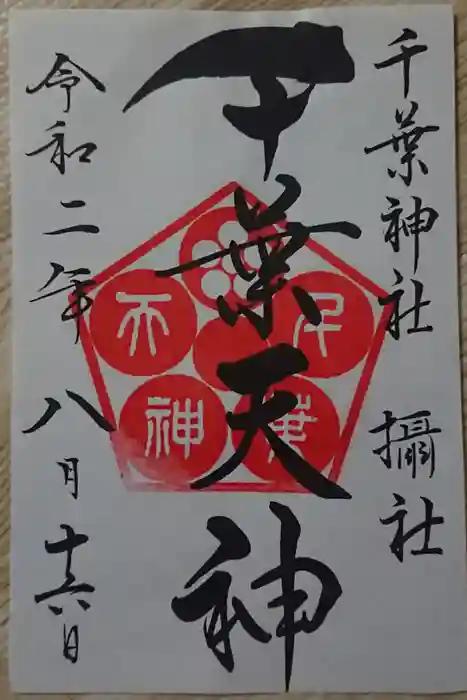 千葉神社 攝社
千葉天神
千葉天神
令和二年八月十六日